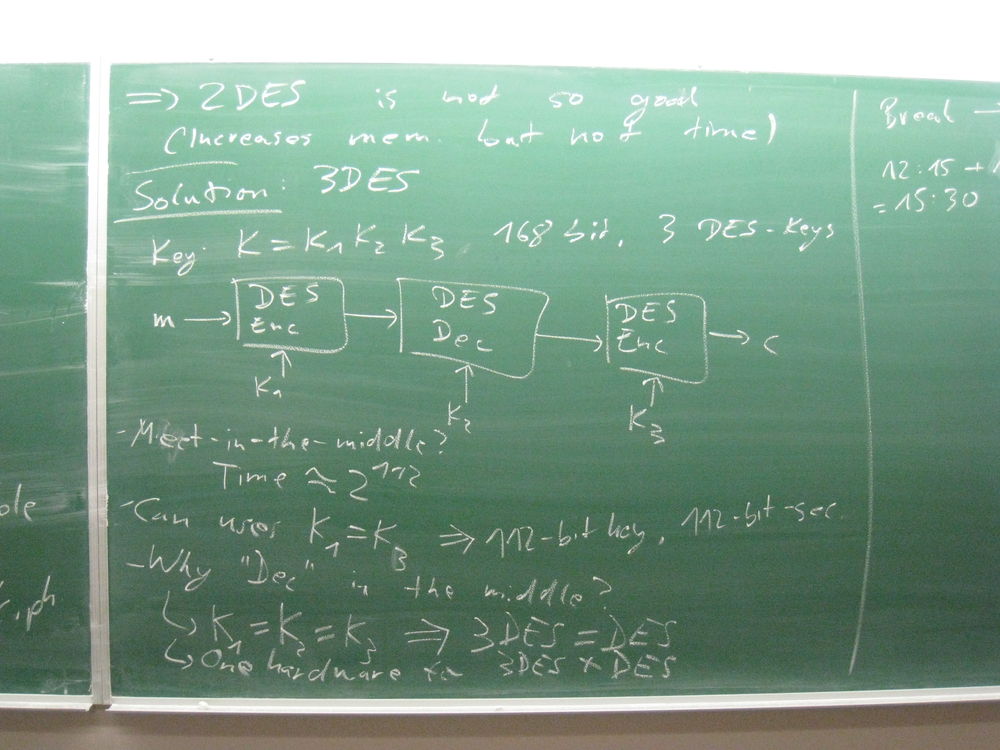 ole
r.ph
=> 2DES is not so good
(Increases mem. but not time)
Solution: 3DES
Key: K = K1 K2 K3 168 bit, 3 DES-Keys
m → DES Enc → DES Dec → DES Enc → c
K1 K2 K3
- Meet-in-the-middle?
Time ≈ 2^112
- Can uses K1 = K3 => 112-bit key, 112-bit-sec.
- Why "Dec" in the middle?
↳ K1 = K2 = K3 => 3DES = DES
↳ One hardware for 3DES + DES
Break →
12:15 +
= 15:30